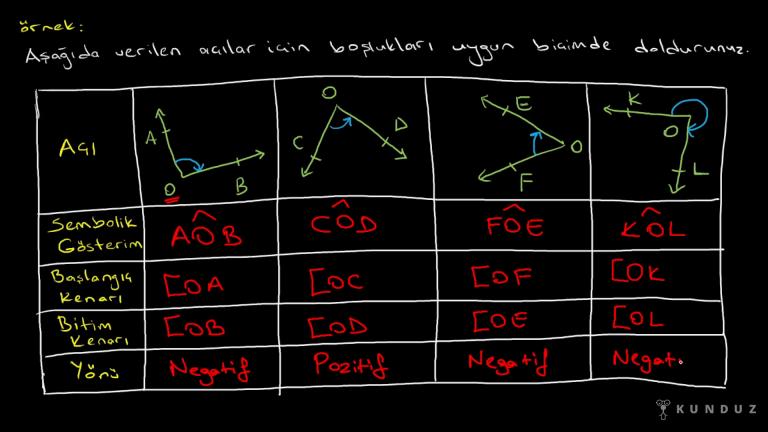 örnek:
Aşağıda verilen açılar için boşlukları uygun biçimde doldurunuz.
Açı
A
O
B
O
C
D
E
O
F
K
O
L
Sembolik Gösterim
AOB
COD
FOE
KOL
Başlangıç Kenarı
[OA
[OC
[OF
[OK
Bitim Kenarı
[OB
[OD
[OE
[OL
Yönü
Negatif
Pozitif
Negatif
Negat
KUNDUZ